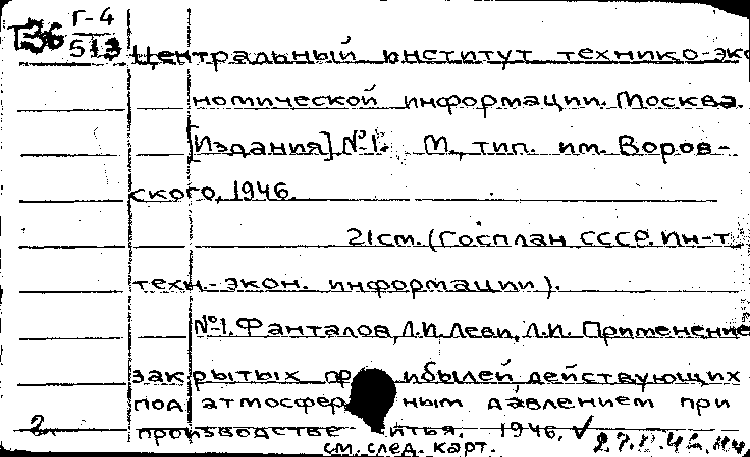 Т36 Г-4
513
Центральный институт технико-эко
номической информации. Москва.
[Издания] №1. М., тип. им. Воров-
ского, 1946.
21см. (Госплан СССР. Ин-т
техн.-экон. информации).
№1. Фанталов, Л.И. Леви, Л.И. Применение
закрытых пр ибылей, действующих
под атмосфер ным давлением при
2 производстве литья. 1946, ✓
см. след. карт.